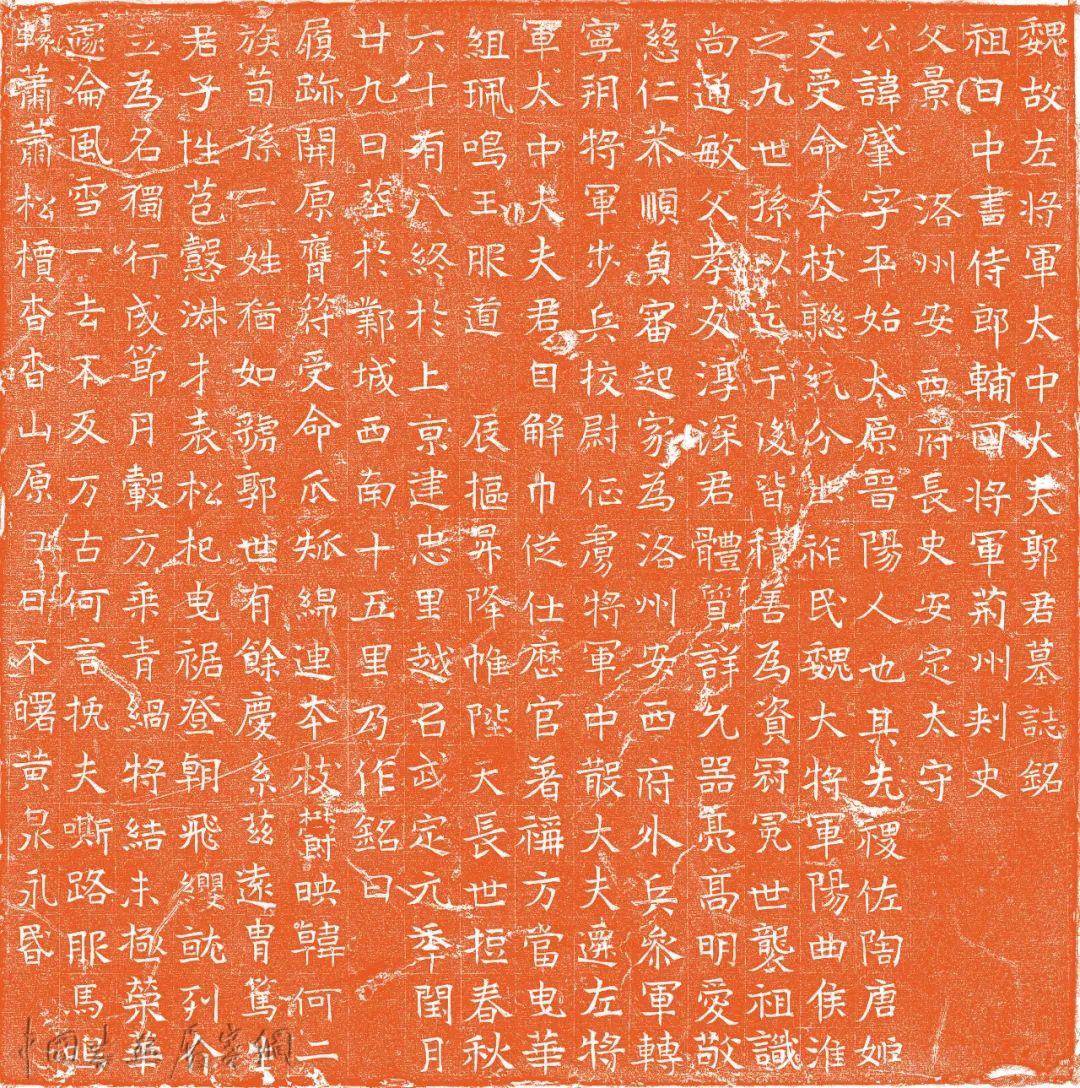 魏故左將軍太中大夫郭君墓誌銘
祖日中書侍郎輔國將軍荊州刾史
父景 洛州安西府長史安定太守
公諱肇字平始太原晉陽人也其先稷佐陶唐姬
文受命夲枝聯統分土祚民魏大將軍陽曲侯淮
之九世孫以迄于後皆積善為資冠冕世襲祖識
尚通敏父孝友淳深君體質詳允器亮高明愛敬
慈仁恭順貞審起家為洛州安西府外兵叅軍轉
寧朔將軍步兵挍尉征虜將軍中散大夫遷左將
軍太中大夫君自解巾從仕歷官著稱方當曳華
組珮鳴玉服道 辰樞昇降帷陛天長世短春秋
六十有八終於上京建忠里越召武定元秊閏月
廿九日葬於鄴城西南十五里乃作銘曰
履跡開原膺符受命瓜瓞綿連夲枝 映韡何二
族荀孫二姓猶如虢郭世有餘慶系茲遠胄篤
君子性苞懿淋才表松杞曳裾登朝飛纓就列令
立為名獨行成節丹轂方乗青緺將結未極榮華
遽淪風雪一去不反万古何言挽夫嘶路服馬
轅蕭蕭松檟杳杳山原 日不曙黃泉永昏
中國書法展賽網